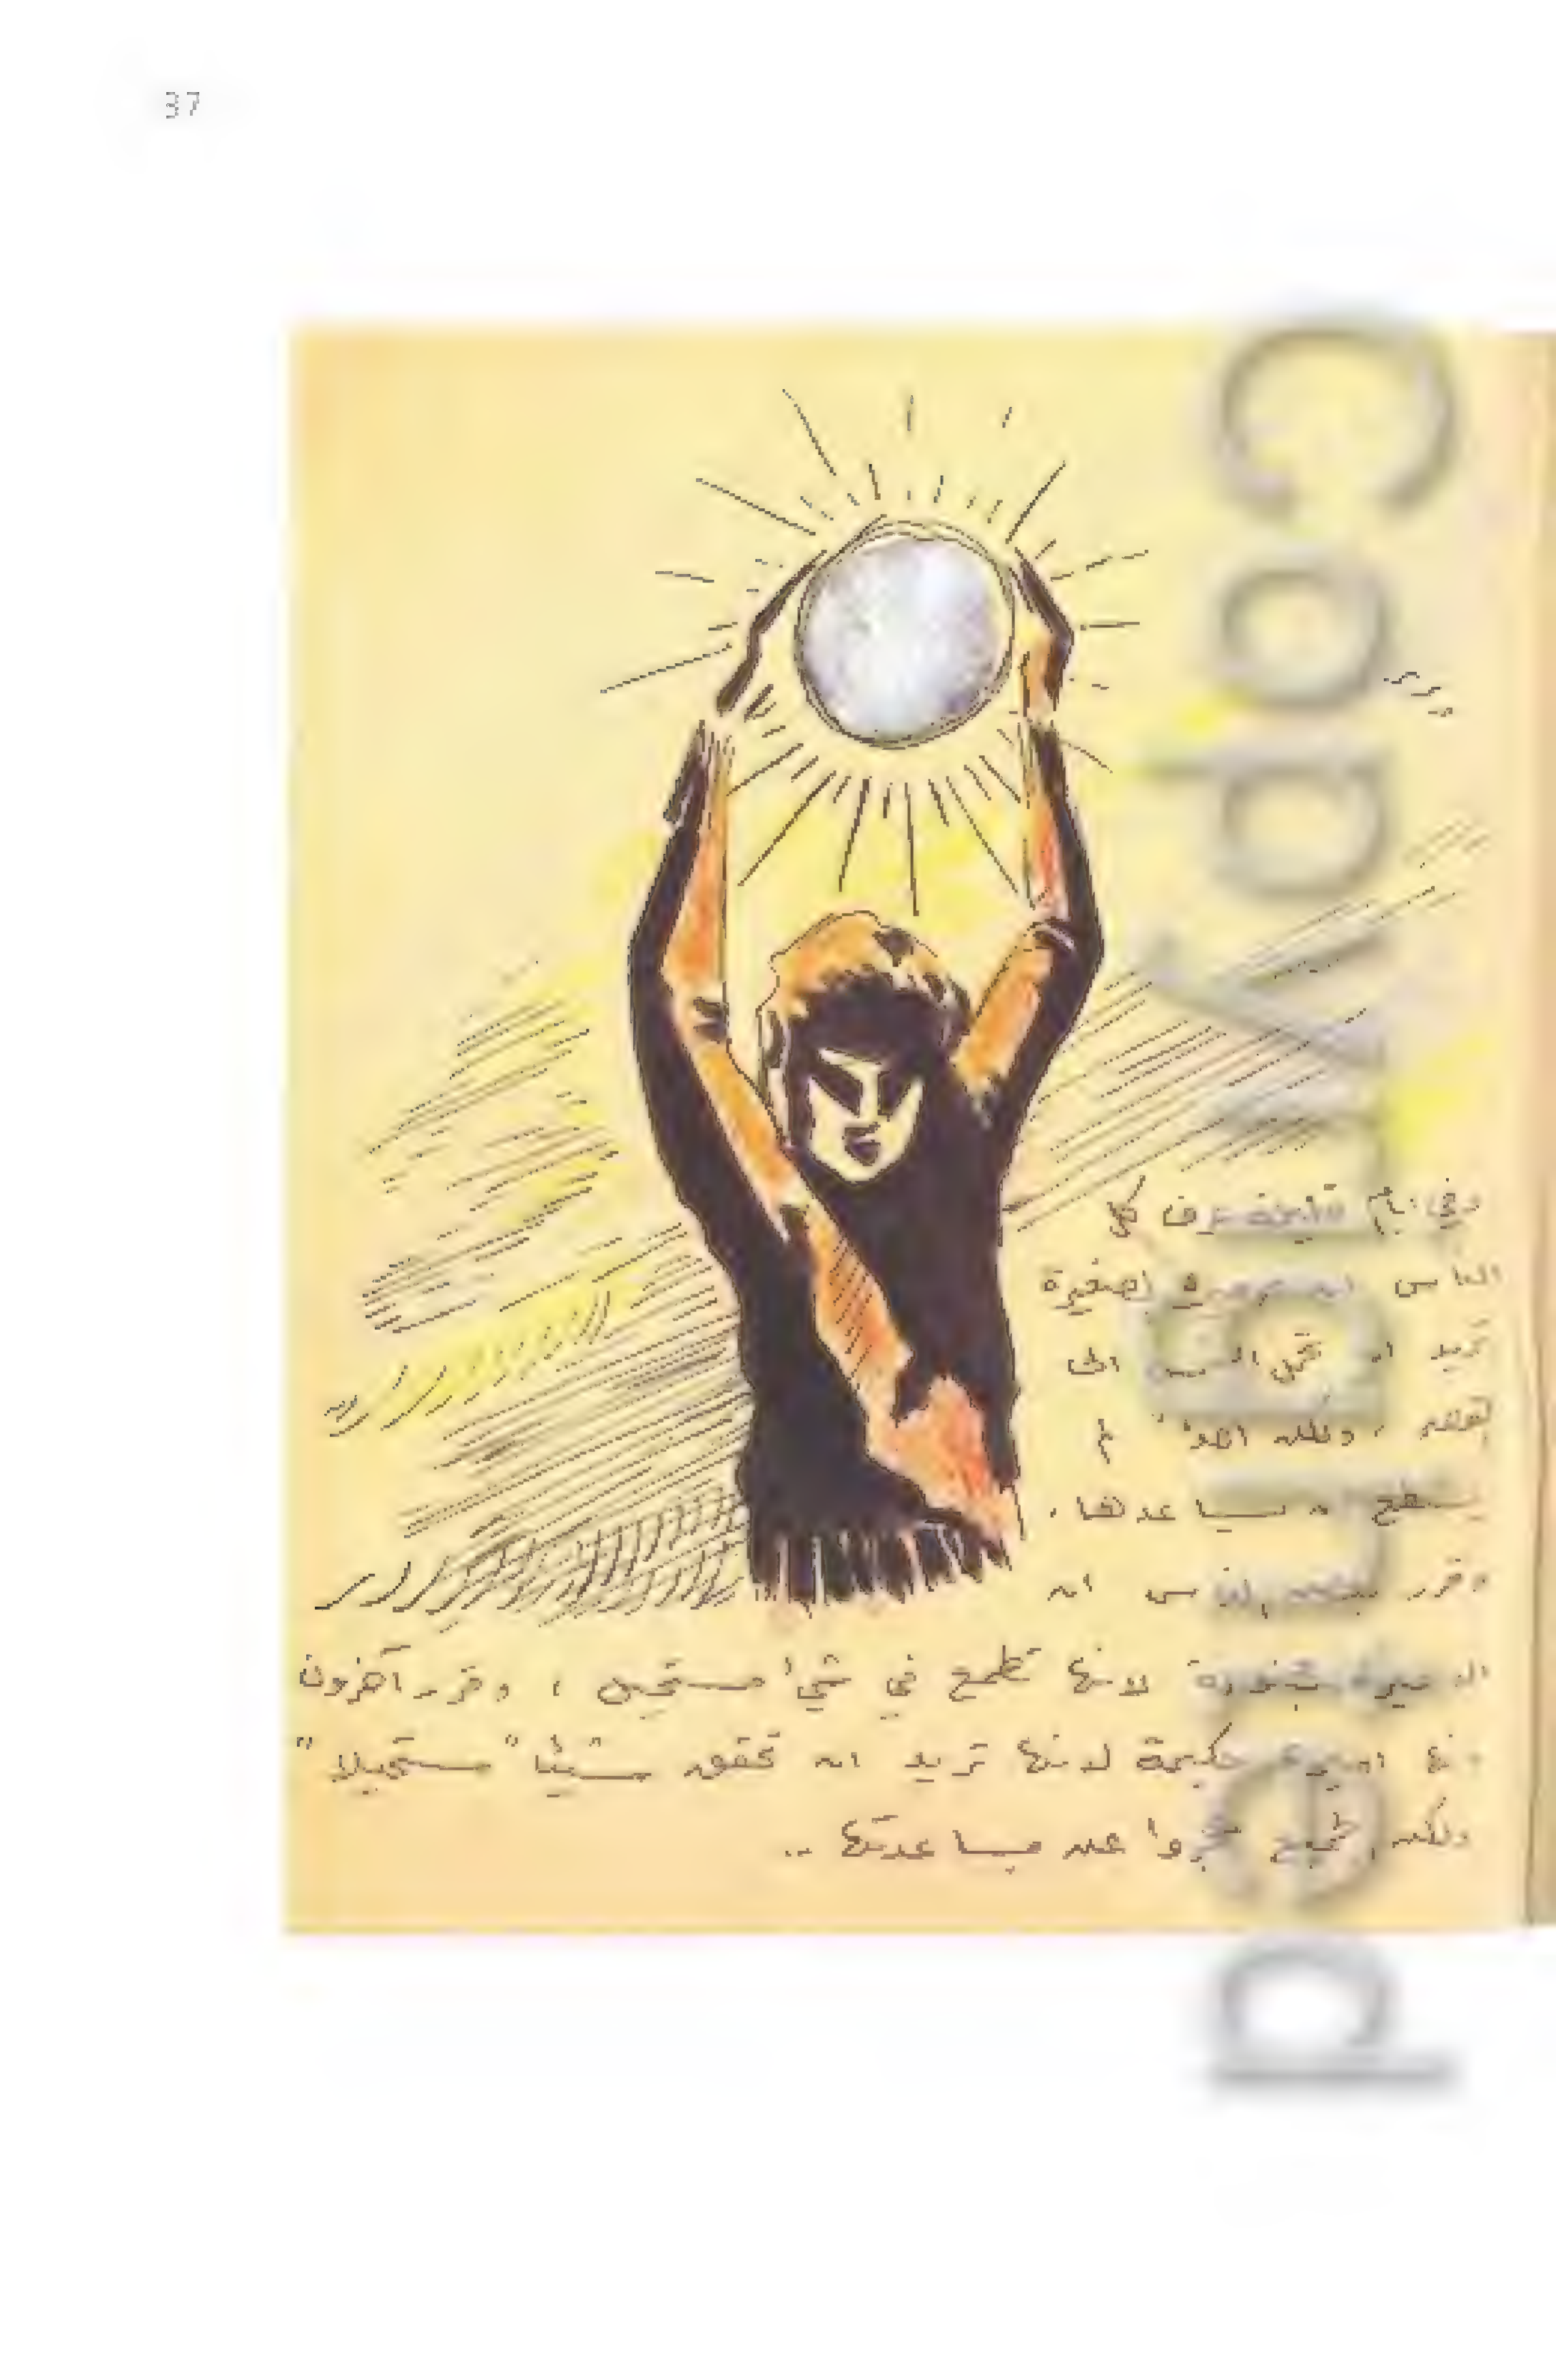 37
وفي ايام قليلة عرف كل
الناس ان الاميرة الصغيرة
تريد ان تحمل الشمس الى
القصر ، ولكن احدا" لم
يستطع ان يساعدها ،
وقرر بعض الناس ان
الاميرة مجنونة لانها تطمع في شيء مستحيل ، وقرر آخرون
انها اميرة حكيمة لانها تريد ان تحقق شيئا" مستحيلا"
ولكن الجميع عجزوا عن مساعدتها ..
copyrighted